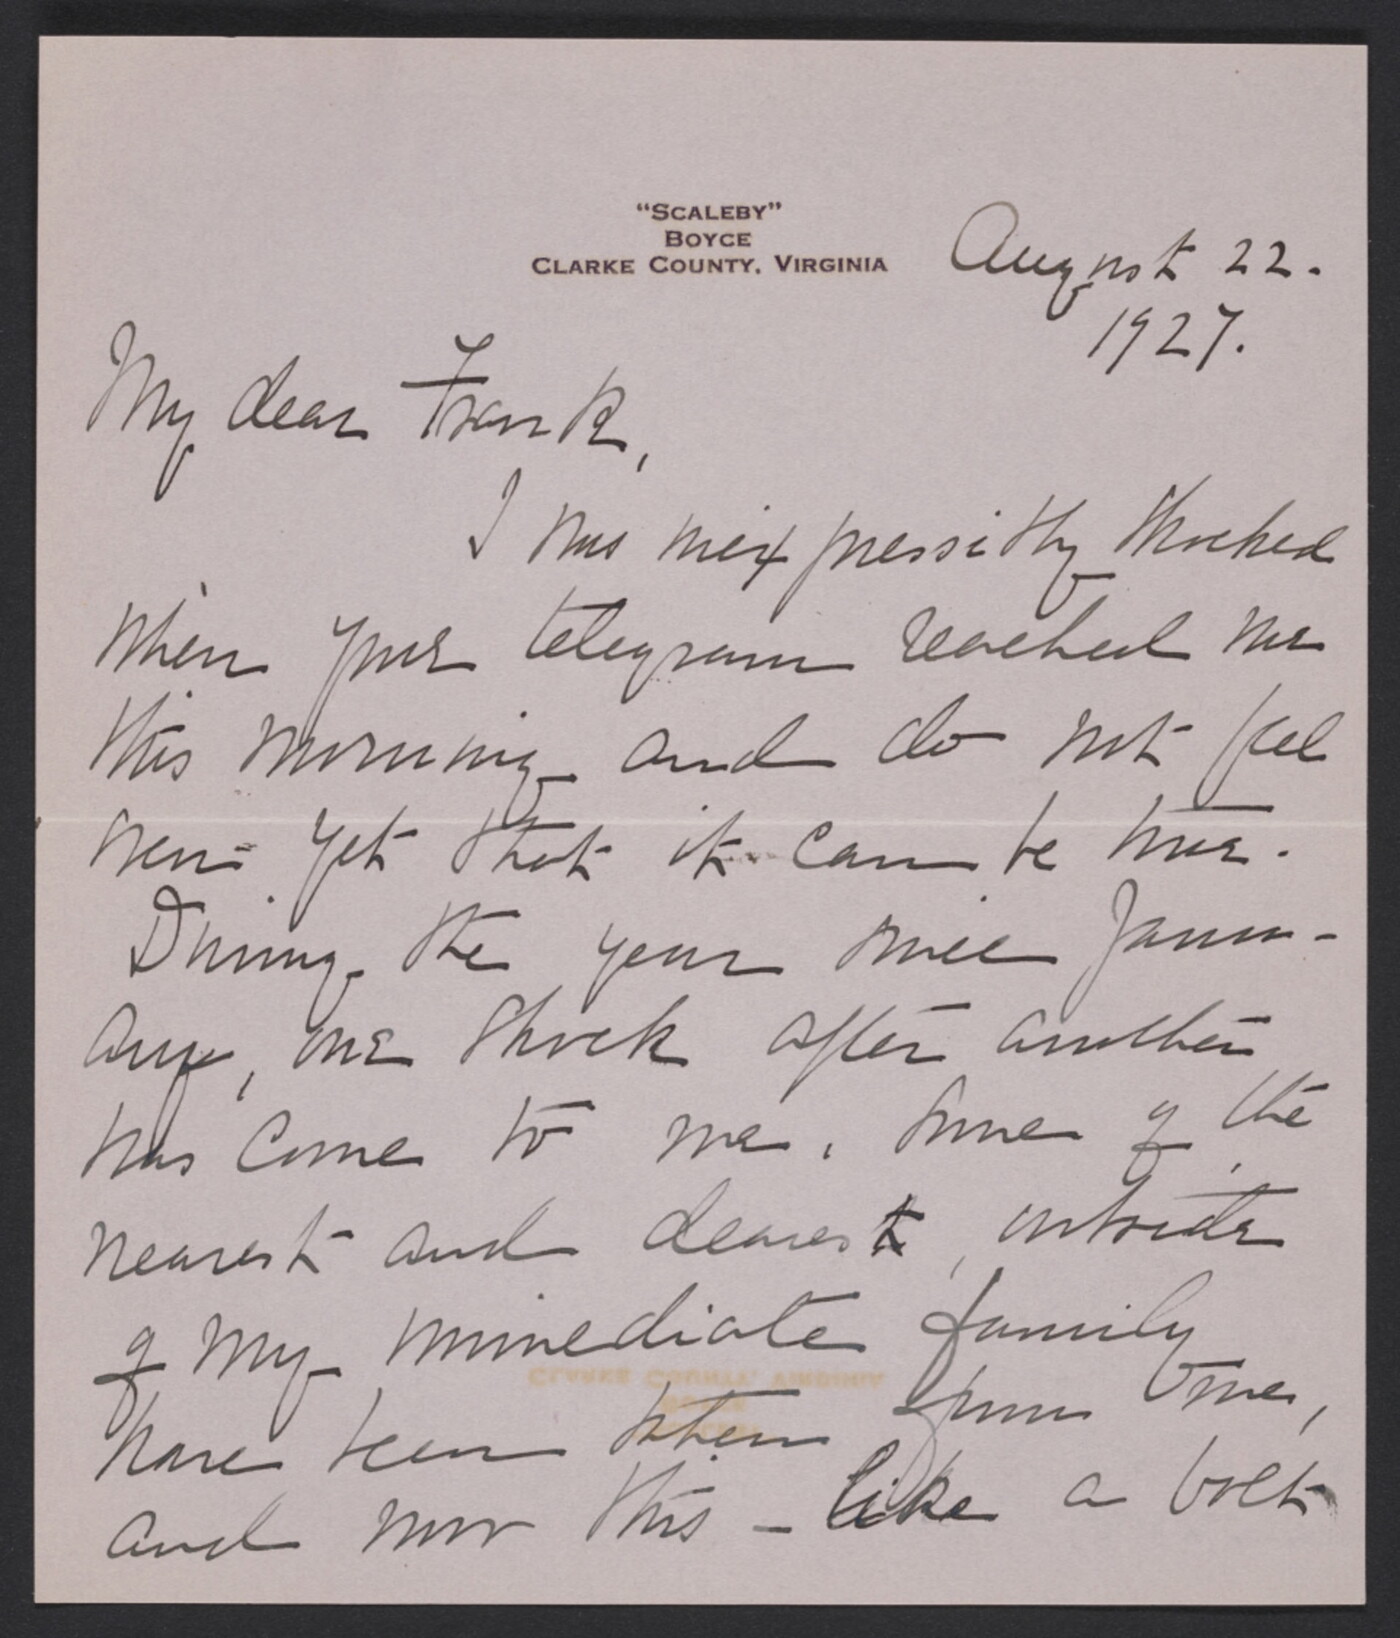 "SCALEBY"
BOYCE
CLARKE COUNTY, VIRGINIA
August 22.
1927.
My dear Frank,
I was inexpressibly shocked
when your telegram reached me
this morning and do not feel
even yet that it can be true.
During the year since Janu-
ary, one shock after another
has come to me. Some of the
nearest and dearest, outside
of my immediate family
have been taken from me,
and now this - like a bolt